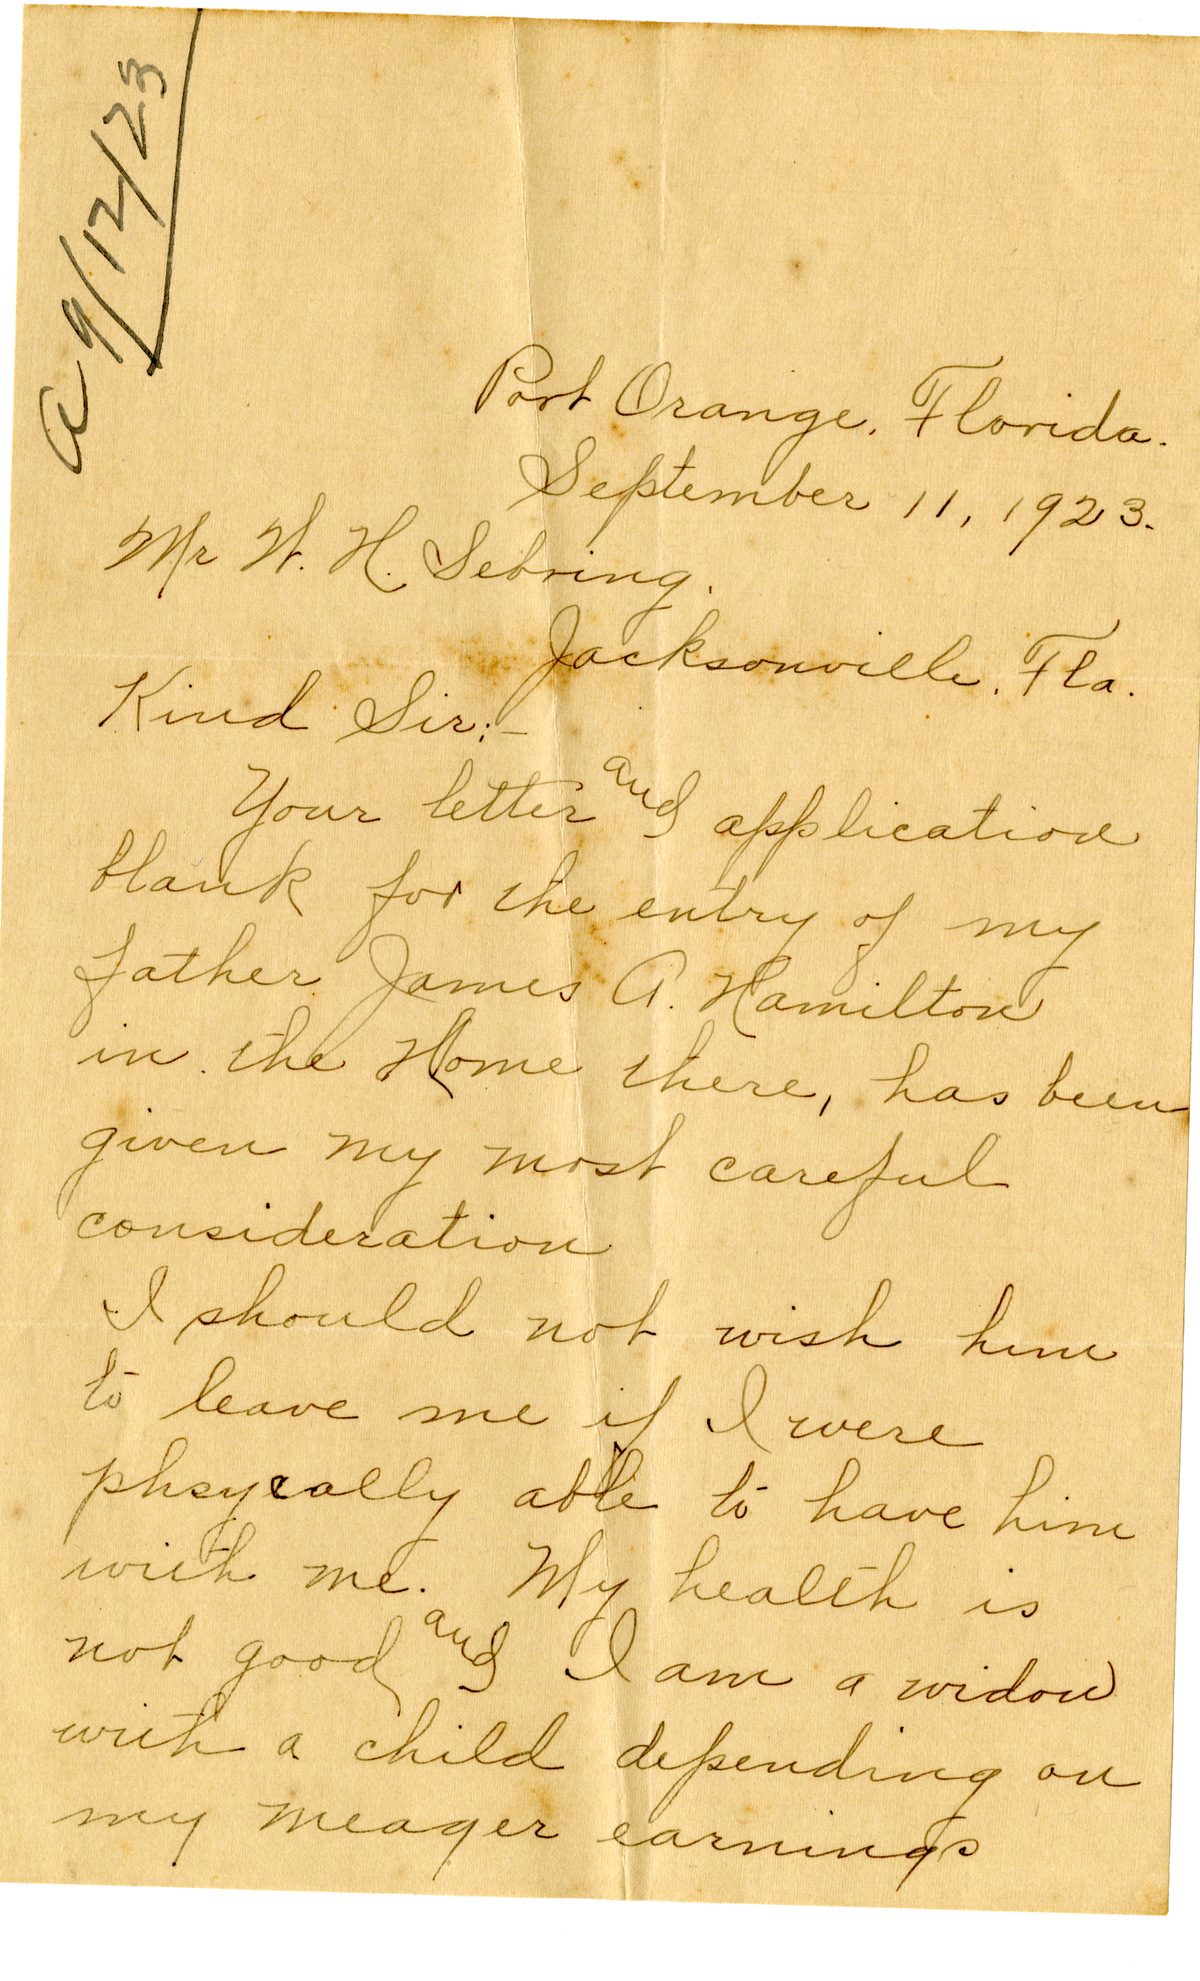 a 9/12/23
Port Orange, Florida.
September 11, 1923.
Mr W. H. Sebring.
Jacksonville, Fla.
Kind Sir:-
Your letter and application
blank for the entry of my
father James A. Hamilton
in the Home there, has been
given my most careful
consideration
I should not wish him
to leave me if I were
phsycally able to have him
with me. My health is
not good and I am a widow
with a child depending on
my meager earnings